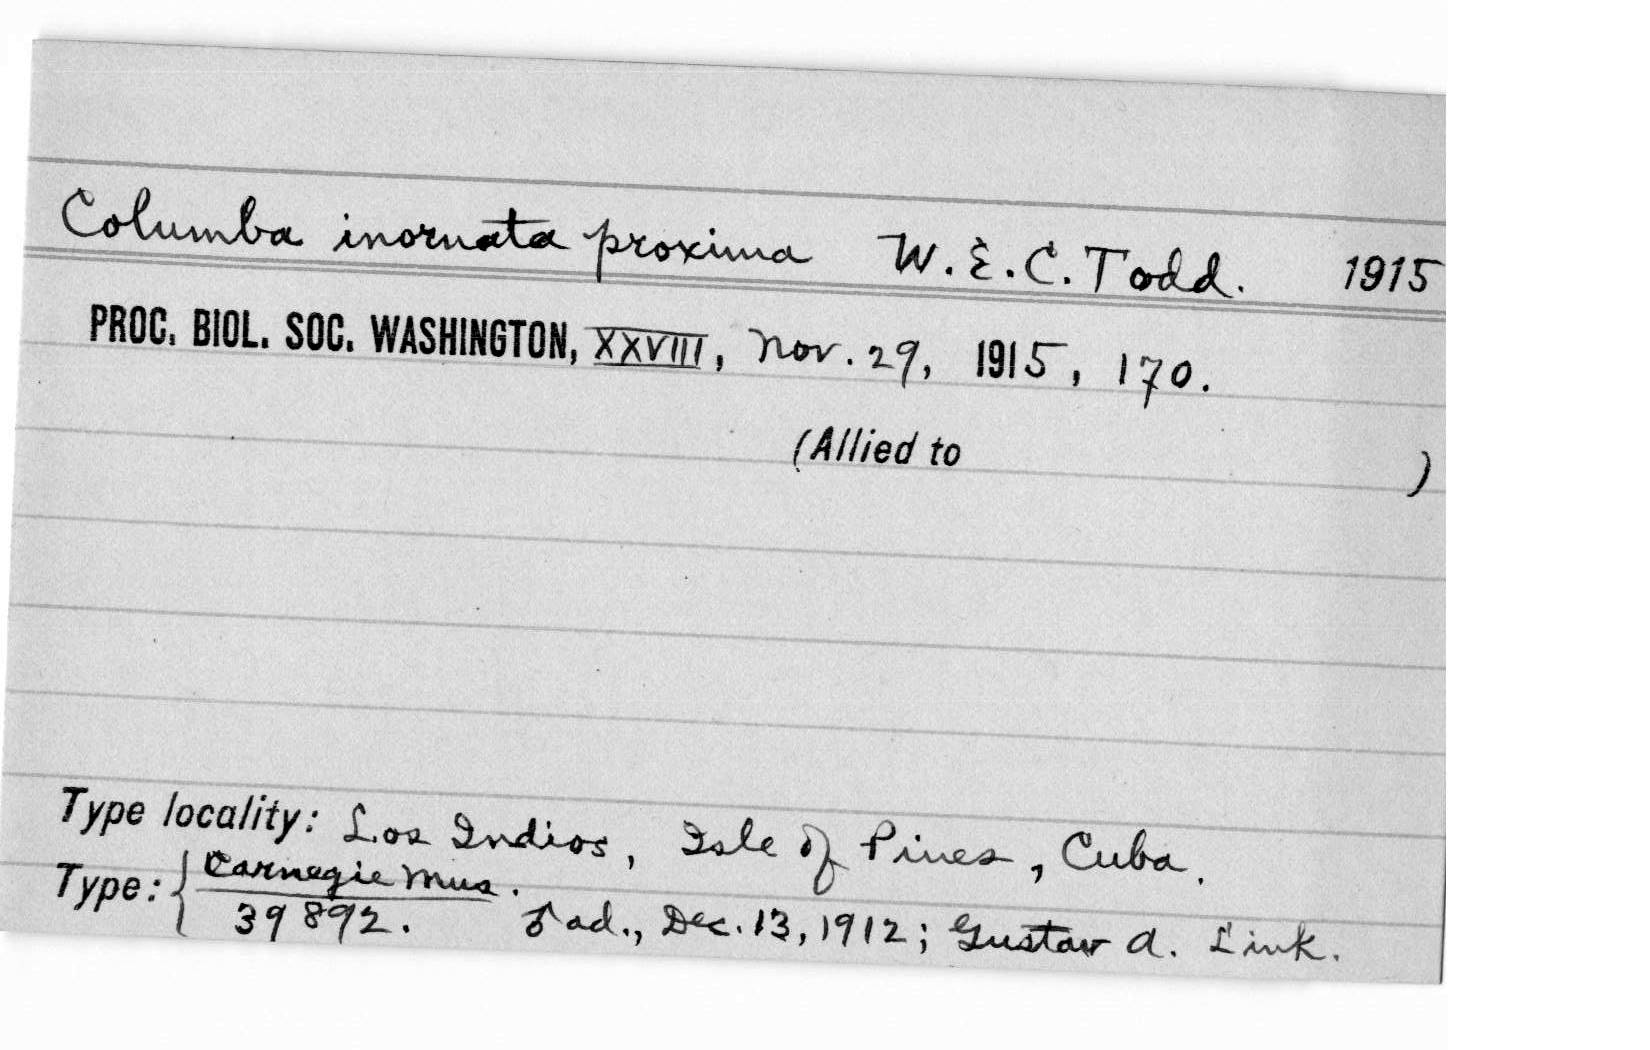 Columba inornata proxima W. E. C. Todd. 1915
PROC. BIOL. SOC. WASHINGTON, XXVIII, Nov. 29, 1915, 170.
(Allied to )
Type locality: Los Indios, Isle of Pines, Cuba.
Type: { Carnegie Mus.
39892. ♂ ad., Dec. 13, 1912; Gustav A. Link.